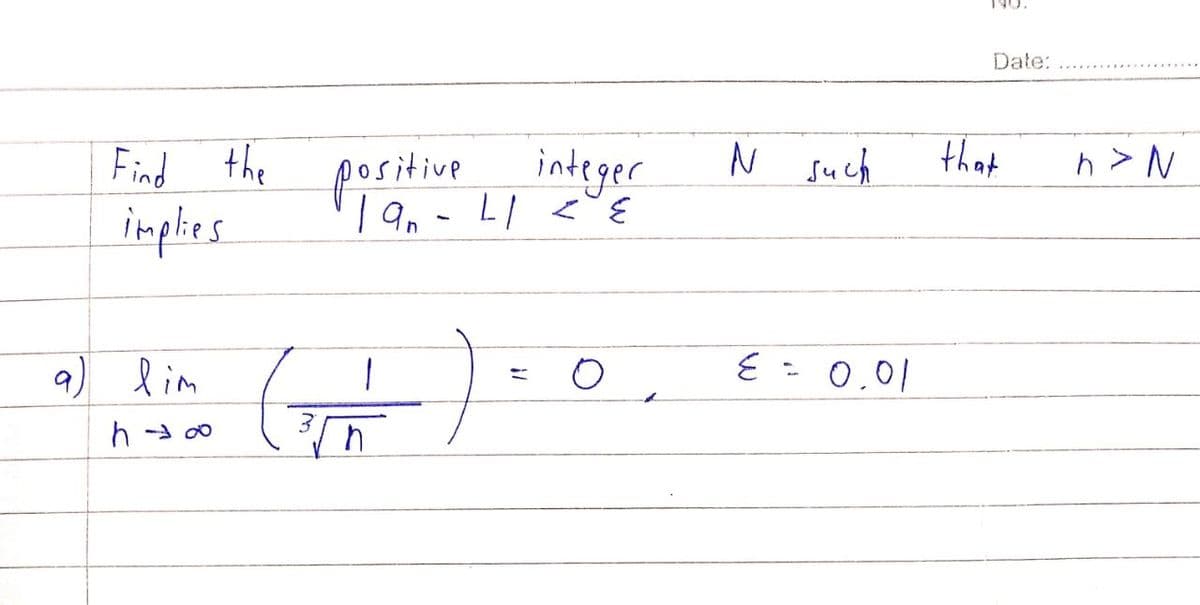 Date: ......................
Find the positive integer N such that n > N
implies |an - L| < ε
a) lim (1/∛n) = 0, ε = 0.01
n → ∞